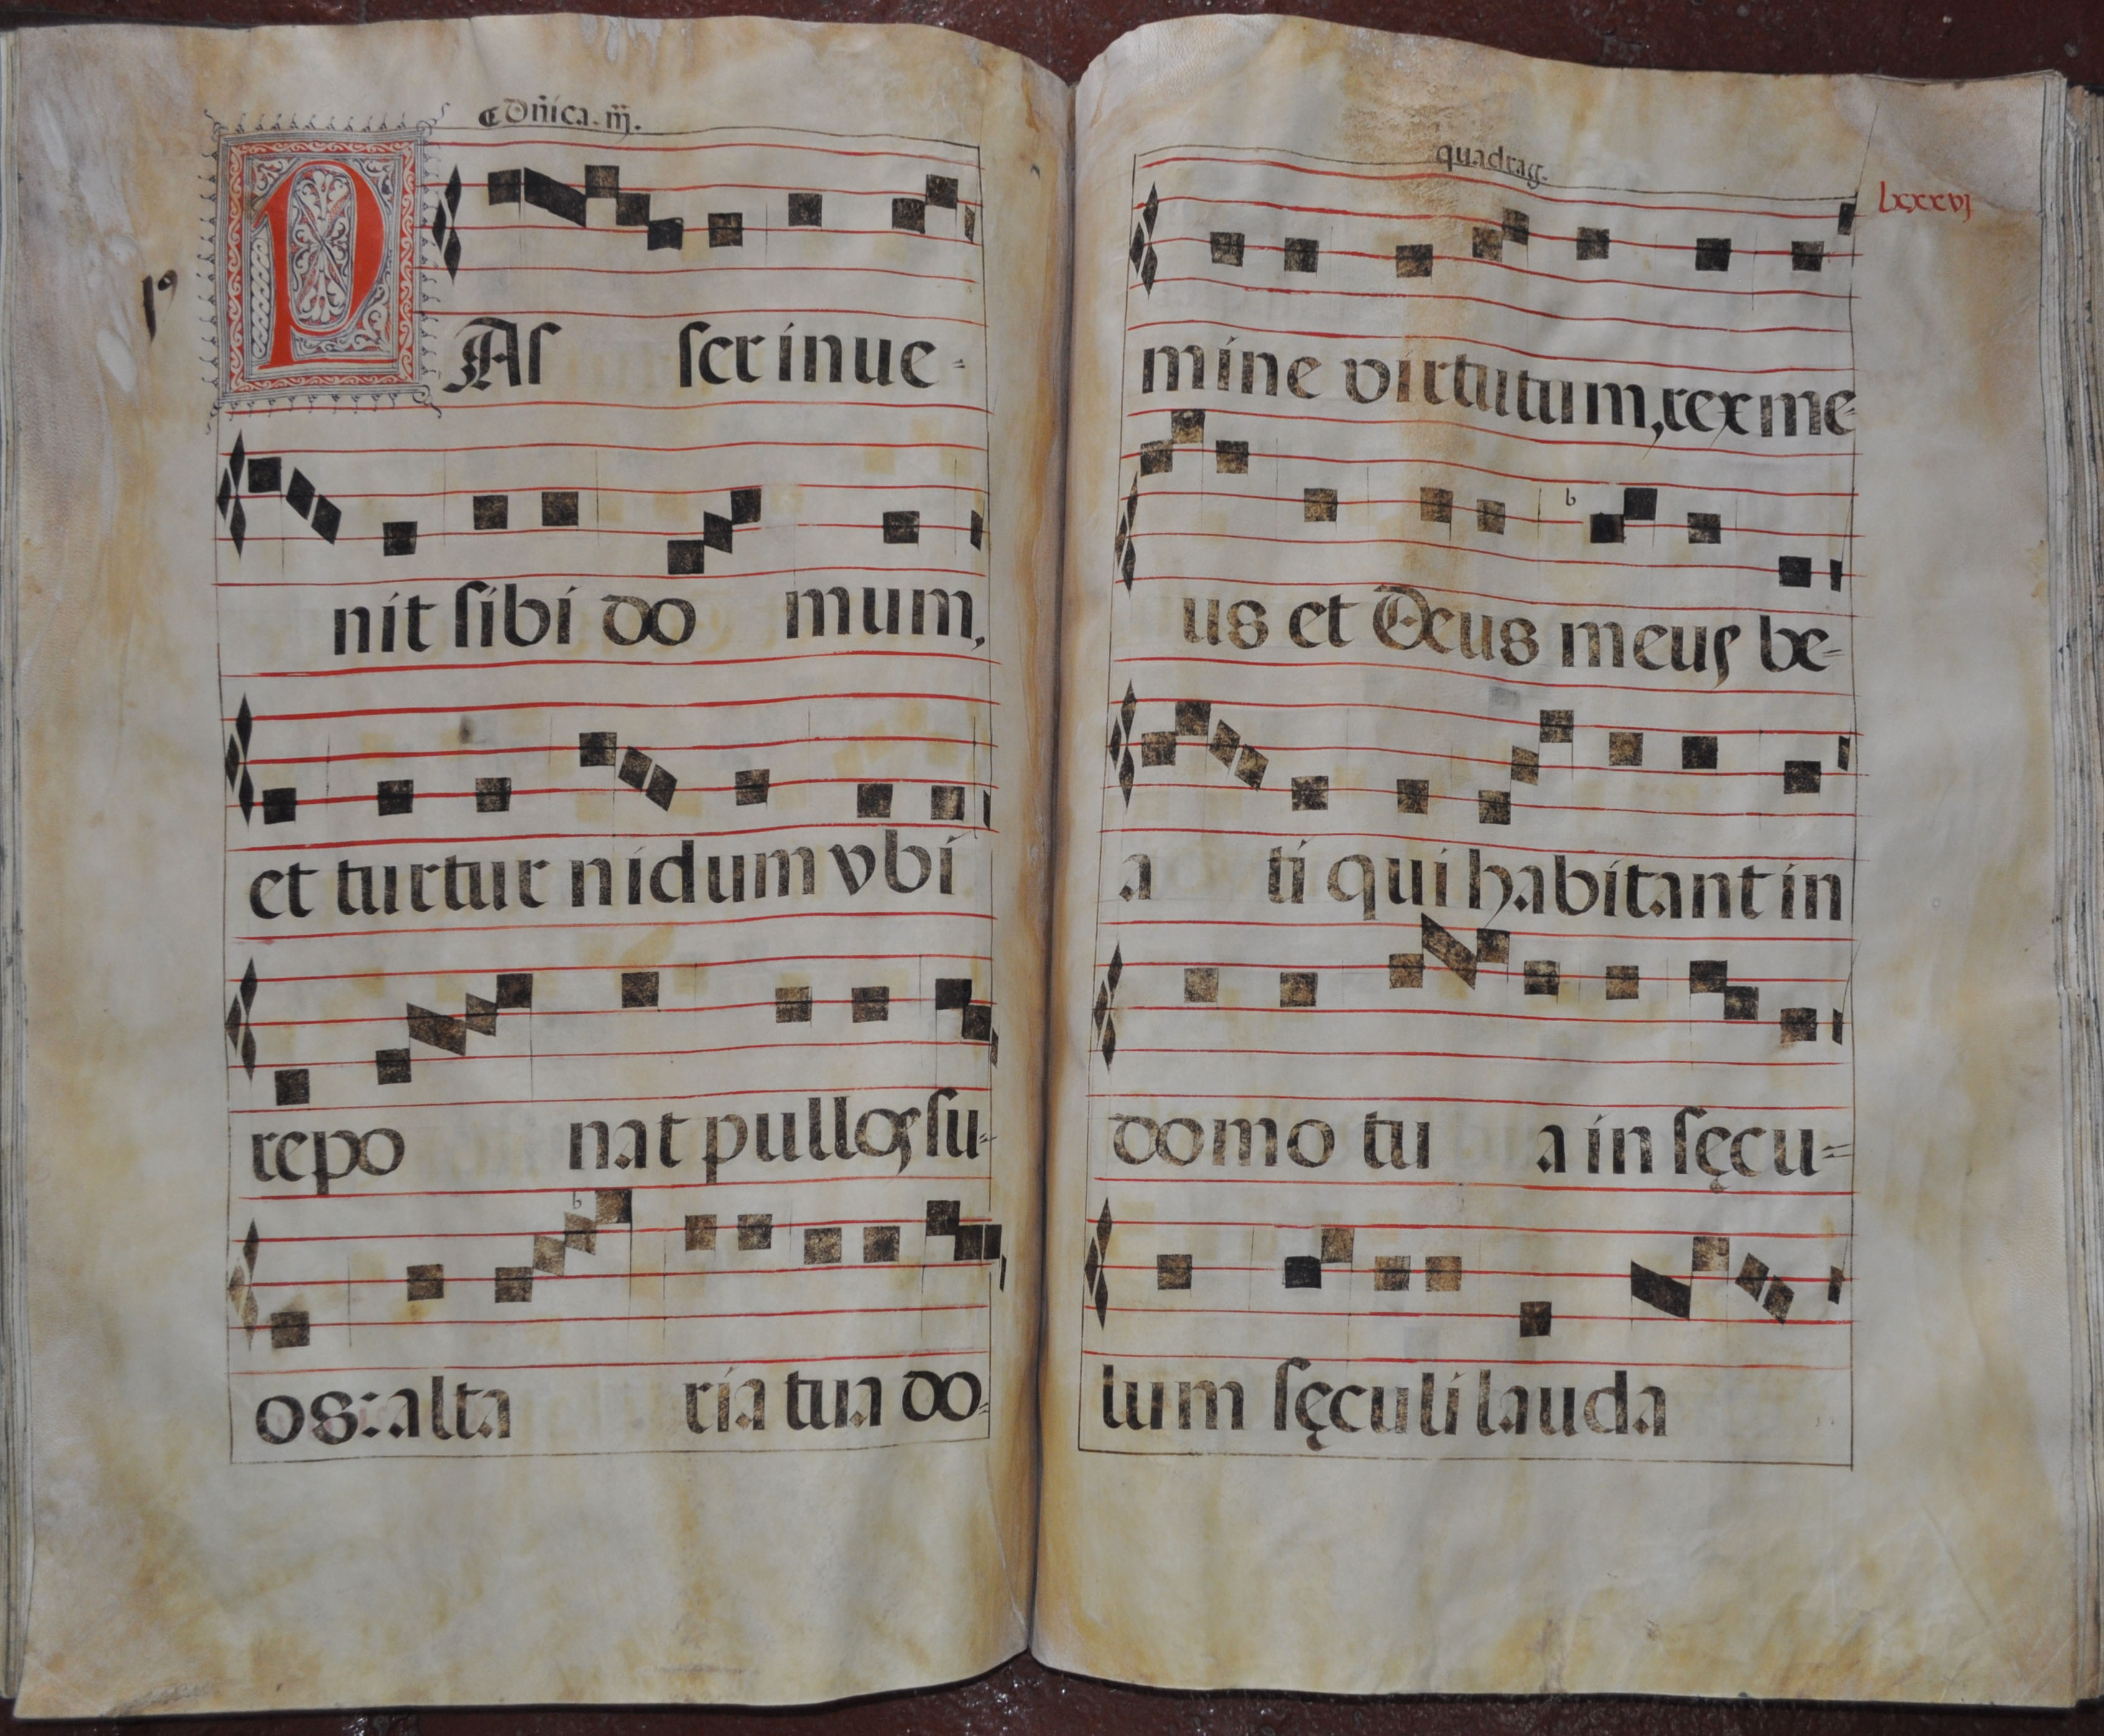 Dñica. iij.
PAſ ſer inue-
nit ſibi do mum,
et turtur nidum vbi
repo nat pullos ſu-
os: alta ria tua do-
quadrag.
lxxxvj
mine virtutum, rex me-
us et Deus meus be-
a ti qui habitant in
domo tu a in ſęcu-
lum ſęculi lauda